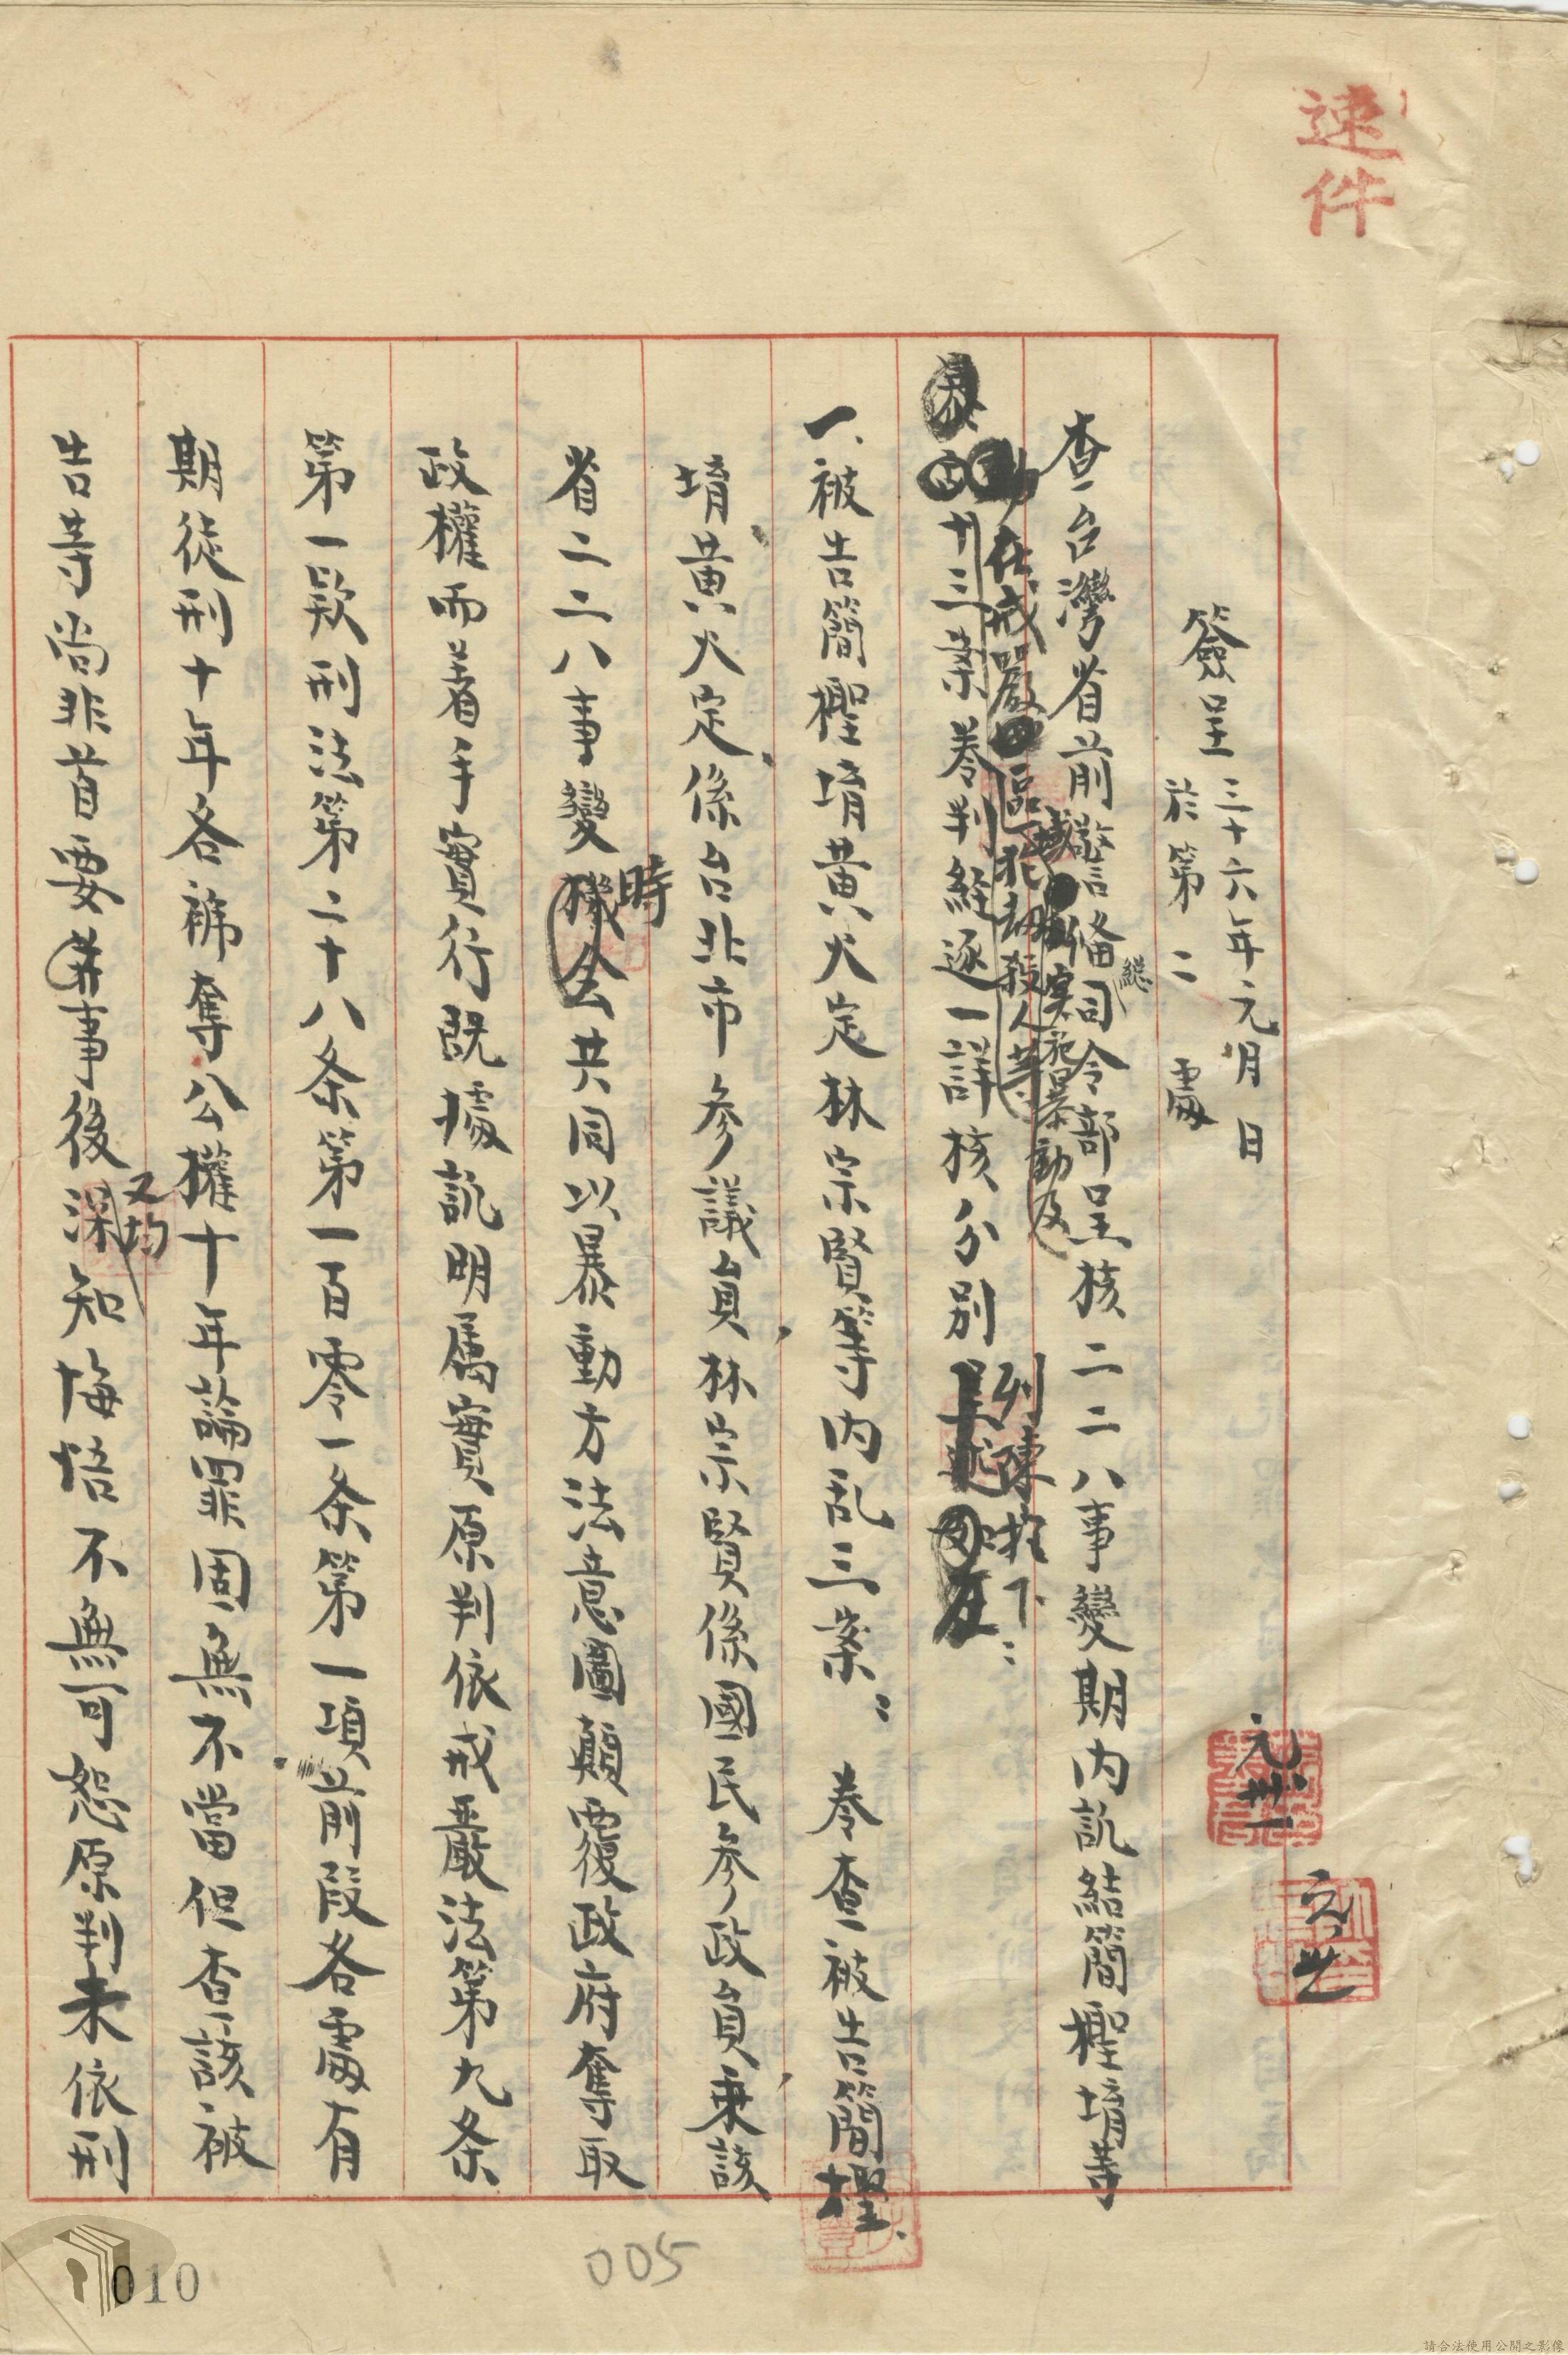 速件
簽呈 三十六年元月 日
於第二處
元卅一
查台灣省前警備總司令部呈核二二八事變期內訊結簡檉堉等
在戒嚴區域實施暴動及
劫殺人等
十三案卷判經逐一詳核分別列陳於下：
一、被告簡檉堉黃火定林宗賢等內乱三案： 卷查被告簡檉
堉黃火定係台北市參議員，林宗賢係國民參政員，乘該
省二二八事變時機会共同以暴動方法意圖顛覆政府奪取
政權而着手實行既據訊明屬實原判依戒嚴法第九条
第一款刑法第二十八条第一百零一条第一項前段各處有
期徒刑十年各褫奪公權十年論罪固無不當但查該被
告等尚非首要事後又均深知悔悟不無可恕原判未依刑
005
010
請合法使用公開之影像